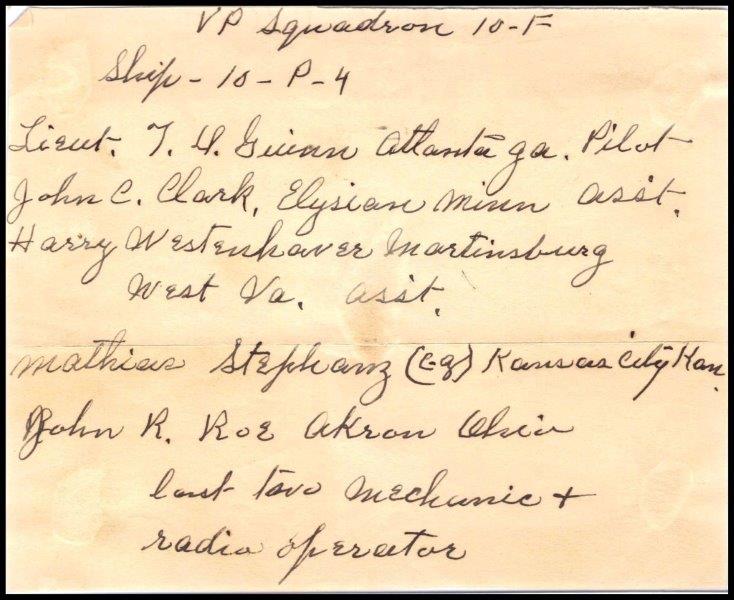 VP Squadron 10-F
Ship - 10 - P - 4
Lieut. T. U. Guinn Atlanta Ga. Pilot
John C. Clark, Elysian Minn asst.
Harry Westenhaver Martinsburg
West Va. asst.
Mathias Stephanz Kansas City Kan.
John R. Roe Akron Ohio
last two mechanic +
radio operator